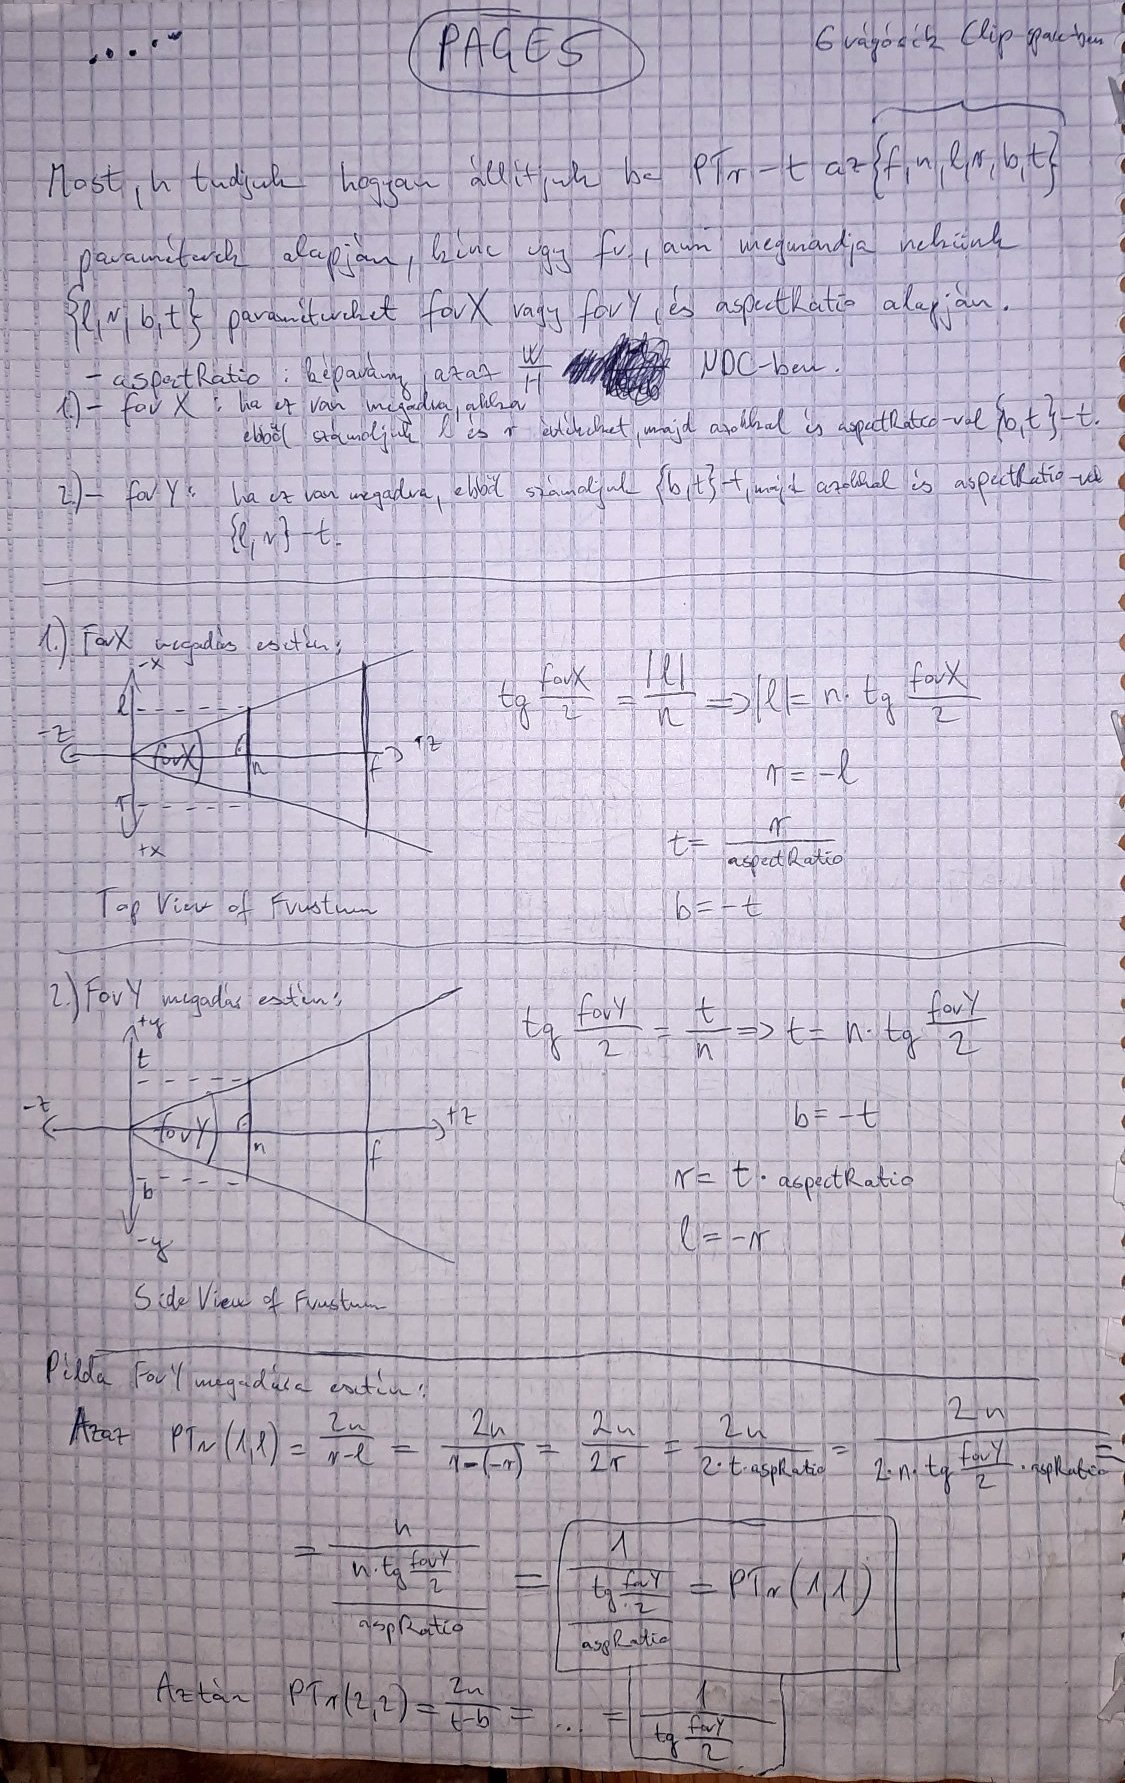 PAGE 5
6 vágósík Clip space-ben
Most, h tudjuk hogyan állítjuk be PTr-t az {f, n, l, r, b, t}
paraméterek alapján, kéne egy fv., ami megmondja nekünk
{l, r, b, t} paramétereket fovX vagy fovY, és aspectRatio alapján.
- aspectRatio : képarány, azaz W/H NDC-ben.
1.) - fov X : ha ez van megadva, akkor
ebből számoljuk l és r értékeket, majd azokkal és aspectRatio-val {b, t}-t.
2.) - fov Y : ha ez van megadva, ebből számoljuk {b, t}-t, majd azokkal és aspectRatio-val
{l, r}-t.
1.) FovX megadás esetén:
-x
l
-z
fovX
n
f
+z
r
+x
Top View of Frustum
tg fovX/2 = |l|/n => |l| = n · tg fovX/2
r = -l
t = r/aspectRatio
b = -t
2.) FovY megadás esetén:
+y
t
-z
fovY
n
f
+z
b
-y
Side View of Frustum
tg fovY/2 = t/n => t = n · tg fovY/2
b = -t
r = t · aspectRatio
l = -r
Példa FovY megadása esetén:
Azaz PTr(1,1) = 2n/(r-l) = 2n/(r-(-r)) = 2n/2r = 2n/(2·t·aspRatio) = 2n/(2·n·tg fovY/2 · aspRatio) =
= n/(n·tg fovY/2)/aspRatio = 1/(tg fovY/2)/aspRatio = PTr(1,1)
Aztán PTr(2,2) = 2n/(t-b) = ... = 1/(tg fovY/2)